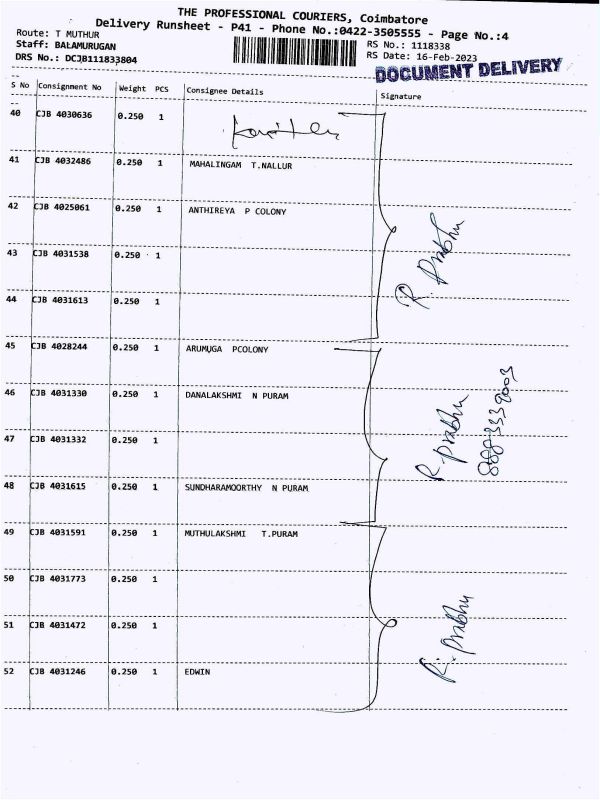 THE PROFESSIONAL COURIERS, Coimbatore
Delivery Runsheet - P41 - Phone No.:0422-3505555 - Page No.:4
Route: T MUTHUR
Staff: BALAMURUGAN
DRS No.: DCJB111833804
RS No.: 1118338
RS Date: 16-Feb-2023
DOCUMENT DELIVERY
S No Consignment No Weight PCS Consignee Details Signature
40 CJB 4030636 0.250 1
41 CJB 4032486 0.250 1 MAHALINGAM T.NALLUR
42 CJB 4025061 0.250 1 ANTHIREYA P COLONY
43 CJB 4031538 0.250 1
44 CJB 4031613 0.250 1
R. Prabhu
45 CJB 4028244 0.250 1 ARUMUGA PCOLONY
46 CJB 4031330 0.250 1 DANALAKSHMI N PURAM
47 CJB 4031332 0.250 1
48 CJB 4031615 0.250 1 SUNDHARAMOORTHY N PURAM
R. Prabhu
49 CJB 4031591 0.250 1 MUTHULAKSHMI T.PURAM
50 CJB 4031773 0.250 1
51 CJB 4031472 0.250 1
52 CJB 4031246 0.250 1 EDWIN
R. Prabhu